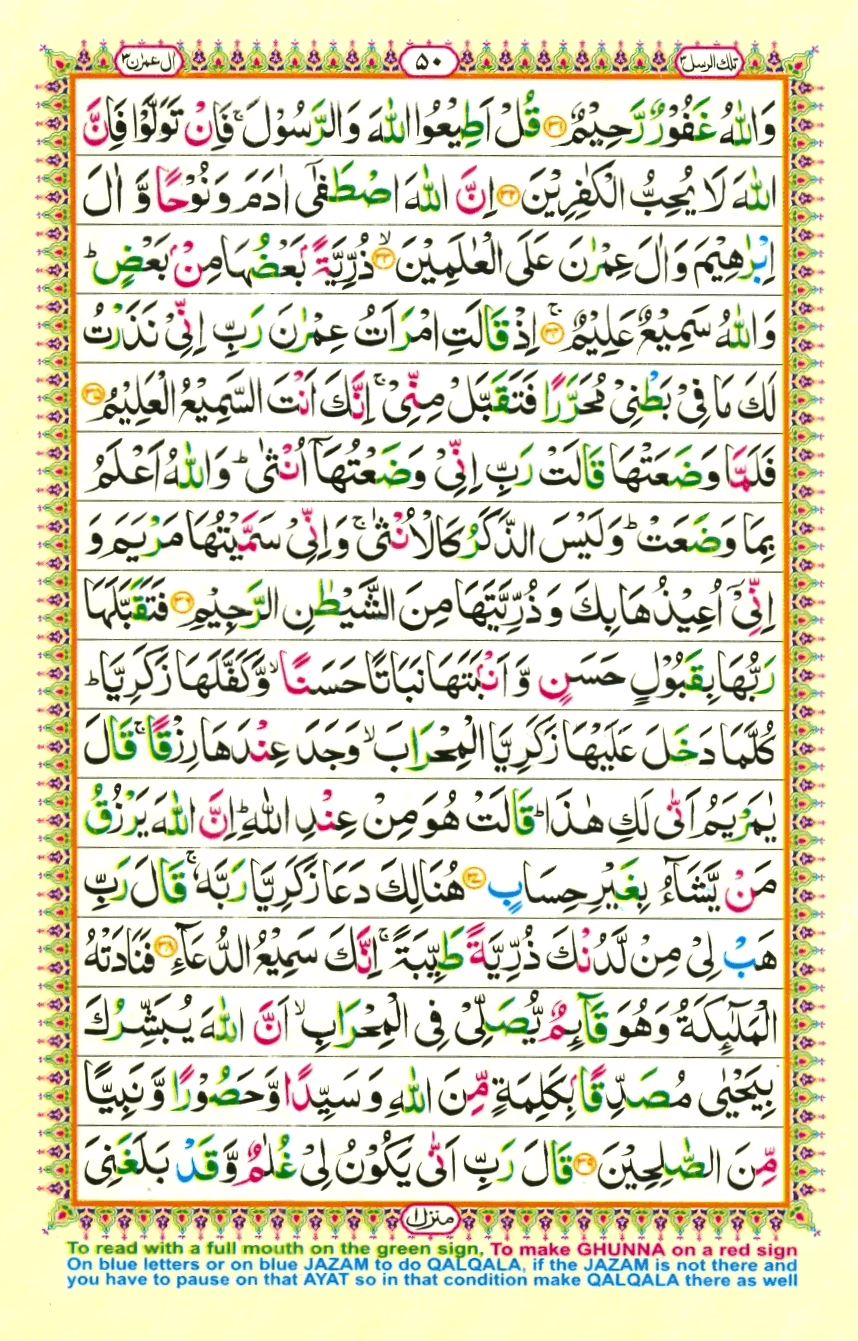 تلك الرسل ۳ ۵۰ اٰل عمرٰن ۳
وَاللّٰهُ غَفُوْرٌ رَّحِيْمٌ ﴿۳۱﴾ قُلْ اَطِيْعُوا اللّٰهَ وَالرَّسُوْلَ ۚ فَاِنْ تَوَلَّوْا فَاِنَّ
اللّٰهَ لَا يُحِبُّ الْكٰفِرِيْنَ ﴿۳۲﴾ اِنَّ اللّٰهَ اصْطَفٰٓى اٰدَمَ وَنُوْحًا وَّ اٰلَ
اِبْرٰهِيْمَ وَاٰلَ عِمْرٰنَ عَلَى الْعٰلَمِيْنَ ۙ﴿۳۳﴾ ذُرِّيَّةًۢ بَعْضُهَا مِنْۢ بَعْضٍ ؕ
وَاللّٰهُ سَمِيْعٌ عَلِيْمٌ ۚ﴿۳۴﴾ اِذْ قَالَتِ امْرَاَتُ عِمْرٰنَ رَبِّ اِنِّىْ نَذَرْتُ
لَكَ مَا فِىْ بَطْنِىْ مُحَرَّرًا فَتَقَبَّلْ مِنِّىْ ۚ اِنَّكَ اَنْتَ السَّمِيْعُ الْعَلِيْمُ ﴿۳۵﴾
فَلَمَّا وَضَعَتْهَا قَالَتْ رَبِّ اِنِّىْ وَضَعْتُهَاۤ اُنْثٰى ؕ وَاللّٰهُ اَعْلَمُ
بِمَا وَضَعَتْ ؕ وَلَيْسَ الذَّكَرُ كَالْاُنْثٰى ۚ وَاِنِّىْ سَمَّيْتُهَا مَرْيَمَ وَ
اِنِّىْۤ اُعِيْذُهَا بِكَ وَ ذُرِّيَّتَهَا مِنَ الشَّيْطٰنِ الرَّجِيْمِ ﴿۳۶﴾ فَتَقَبَّلَهَا
رَبُّهَا بِقَبُوْلٍ حَسَنٍ وَّ اَنْۢبَتَهَا نَبَاتًا حَسَنًا ۙ وَّكَفَّلَهَا زَكَرِيَّا ؕ
كُلَّمَا دَخَلَ عَلَيْهَا زَكَرِيَّا الْمِحْرَابَ ۙ وَجَدَ عِنْدَهَا رِزْقًا ۚ قَالَ
يٰمَرْيَمُ اَنّٰى لَكِ هٰذَا ؕ قَالَتْ هُوَ مِنْ عِنْدِ اللّٰهِ ؕ اِنَّ اللّٰهَ يَرْزُقُ
مَنْ يَّشَآءُ بِغَيْرِ حِسَابٍ ﴿۳۷﴾ هُنَالِكَ دَعَا زَكَرِيَّا رَبَّهٗ ۚ قَالَ رَبِّ
هَبْ لِىْ مِنْ لَّدُنْكَ ذُرِّيَّةً طَيِّبَةً ۚ اِنَّكَ سَمِيْعُ الدُّعَآءِ ﴿۳۸﴾ فَنَادَتْهُ
الْمَلٰٓئِكَةُ وَهُوَ قَآئِمٌ يُّصَلِّىْ فِى الْمِحْرَابِ ۙ اَنَّ اللّٰهَ يُبَشِّرُكَ
بِيَحْيٰى مُصَدِّقًۢا بِكَلِمَةٍ مِّنَ اللّٰهِ وَسَيِّدًا وَّحَصُوْرًا وَّنَبِيًّا
مِّنَ الصّٰلِحِيْنَ ﴿۳۹﴾ قَالَ رَبِّ اَنّٰى يَكُوْنُ لِىْ غُلٰمٌ وَّقَدْ بَلَغَنِىَ
منزل ۱
To read with a full mouth on the green sign, To make GHUNNA on a red sign
On blue letters or on blue JAZAM to do QALQALA, if the JAZAM is not there and
you have to pause on that AYAT so in that condition make QALQALA there as well